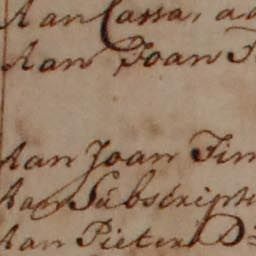 Aan Cassa, a
Aan Joan
Aan Joan Tim
Aan Subscripti
Aan Pieter D